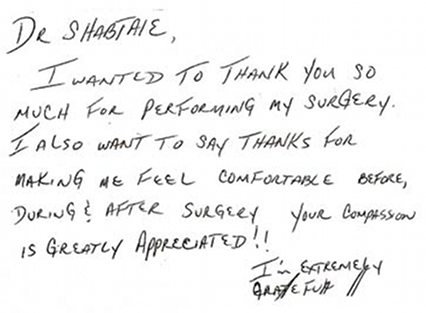 DR SHABTAIE,
I WANTED TO THANK YOU SO
MUCH FOR PERFORMING MY SURGERY.
I ALSO WANT TO SAY THANKS FOR
MAKING ME FEEL COMFORTABLE BEFORE,
DURING & AFTER SURGERY YOUR COMPASSION
IS GREATLY APPRECIATED!!
I'm EXTREMELY
GRATEFUL